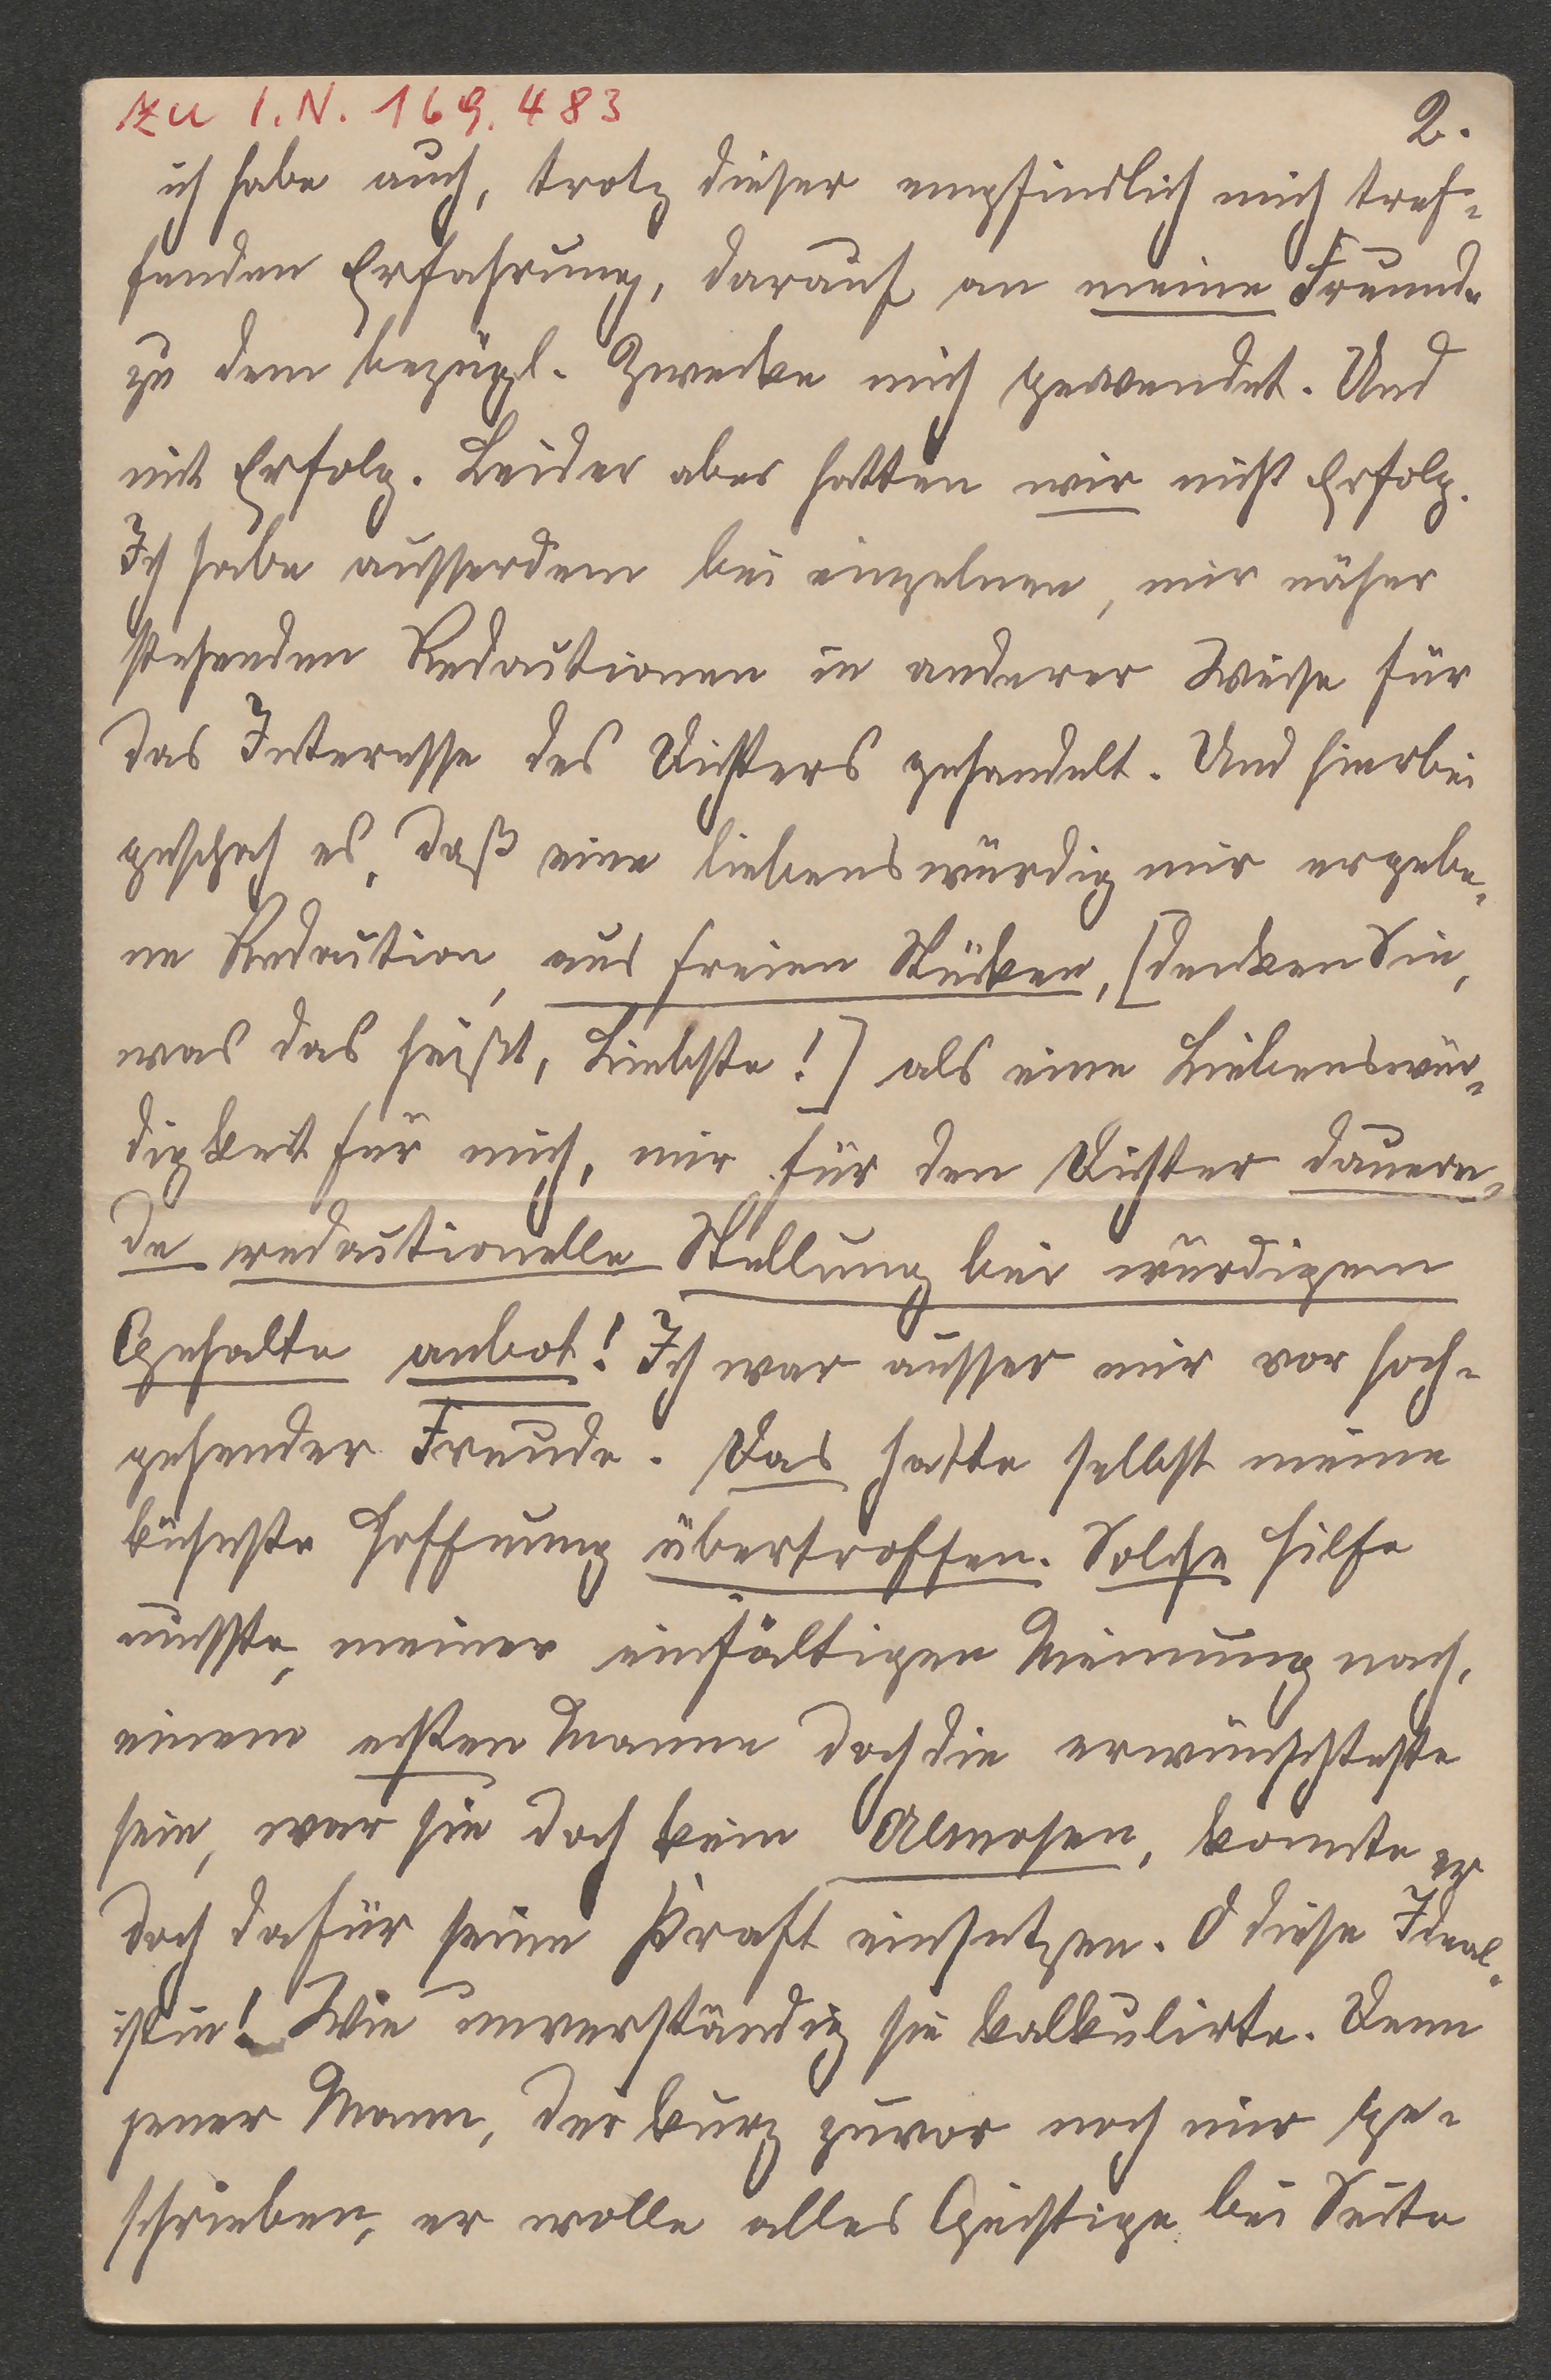 zu I.N. 169.483
2.
ich habe auch, trotz dieser empfindlich mich tref-
fenden Erfahrung, darauf an meine Freunde
zu dem bezügl. Zwecke mich gewendet. Und
mit Erfolg. Leider aber hatten wir nicht Erfolg.
Ich habe ausserdem bei einzelnen, mir näher
stehenden Redactionen in anderer Weise für
das Interesse des Dichters gehandelt. Und hierbei
geschah es, daß eine liebenswürdig mir ergebe-
ne Redaction, aus freien Stücken, [denken Sie,
was das heißt, Liebste!] als eine Liebenswür-
digkeit für mich, mir für den Dichter dauern-
de redactionelle Stellung bei würdigem
Gehalte anbot! Ich war ausser mir vor hoch-
gehender Freude. Das hatte selbst meine
kühnste Hoffnung übertroffen. Solche Hilfe
musste, meiner einfältigen Meinung nach,
einem echten Manne doch die erwünschteste
sein, war sie doch kein Almosen, konnte er
doch dafür seine Kraft einsetzen. O diese Ideal-
istin! Wie unverständig sie kalkulirte. Denn
jener Mann, der kurz zuvor noch mir ge-
schrieben, er wolle alles Geistige bei Seite